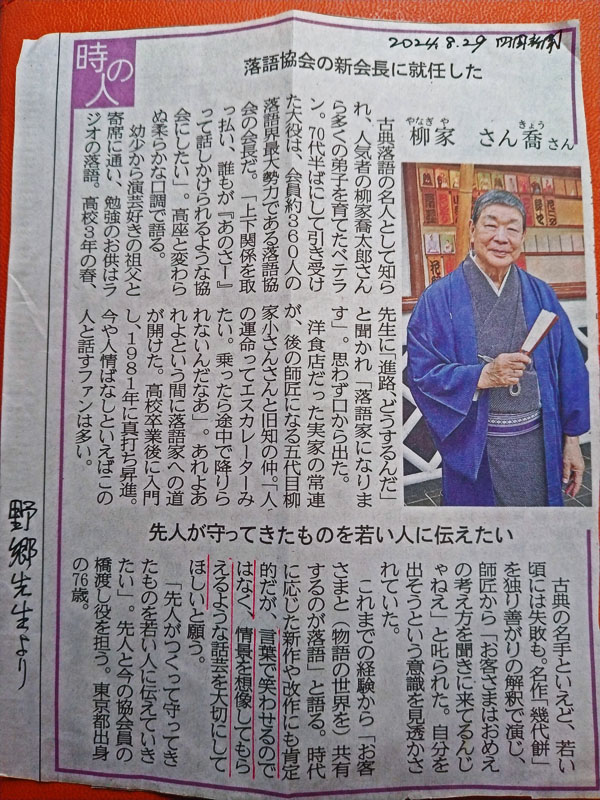 2024.8.29 四国新聞
時の人
落語協会の新会長に就任した
やなぎ や きょう
柳家 さん喬さん
古典落語の名人として知ら
れ、人気者の柳家喬太郎さん
ら多くの弟子を育てたベテラ
ン。70代半ばにして引き受け
た大役は、会員約360人の
落語界最大勢力である落語協
会の会長だ。「上下関係を取
っ払い、誰もが『あのさー』
って話しかけられるような協
会にしたい」。高座と変わら
ぬ柔らかな口調で語る。
幼少から演芸好きの祖父と
寄席に通い、勉強のお供はラ
ジオの落語。高校3年の春、
先生に「進路、どうするんだ」
と聞かれ「落語家になりま
す」。思わず口から出た。
洋食店だった実家の常連
が、後の師匠になる五代目柳
家小さんさんと旧知の仲。「人
の運命ってエスカレーターみ
たい。乗ったら途中で降りら
れないんだなあ」。あれよあ
れよという間に落語家への道
が開けた。高校卒業後に入門
し、1981年に真打ち昇進。
今や人情ばなしといえばこの
人と話すファンは多い。
先人が守ってきたものを若い人に伝えたい
古典の名手といえど、若い
頃には失敗も。名作「幾代餅」
を独り善がりの解釈で演じ、
師匠から「お客さまはおめえ
の考え方を聞きに来てるんじ
ゃねえ」と叱られた。自分を
出そうという意識を見透かさ
れていた。
これまでの経験から「お客
さまと（物語の世界を）共有
するのが落語」と語る。時代
に応じた新作や改作にも肯定
的だが、言葉で笑わせるので
はなく、情景を想像してもら
えるような話芸を大切にして
ほしいと願う。
「先人がつくって守ってき
たものを若い人に伝えていき
たい」。先人と今の協会員の
橋渡し役を担う。東京都出身
の76歳。
野郷先生より